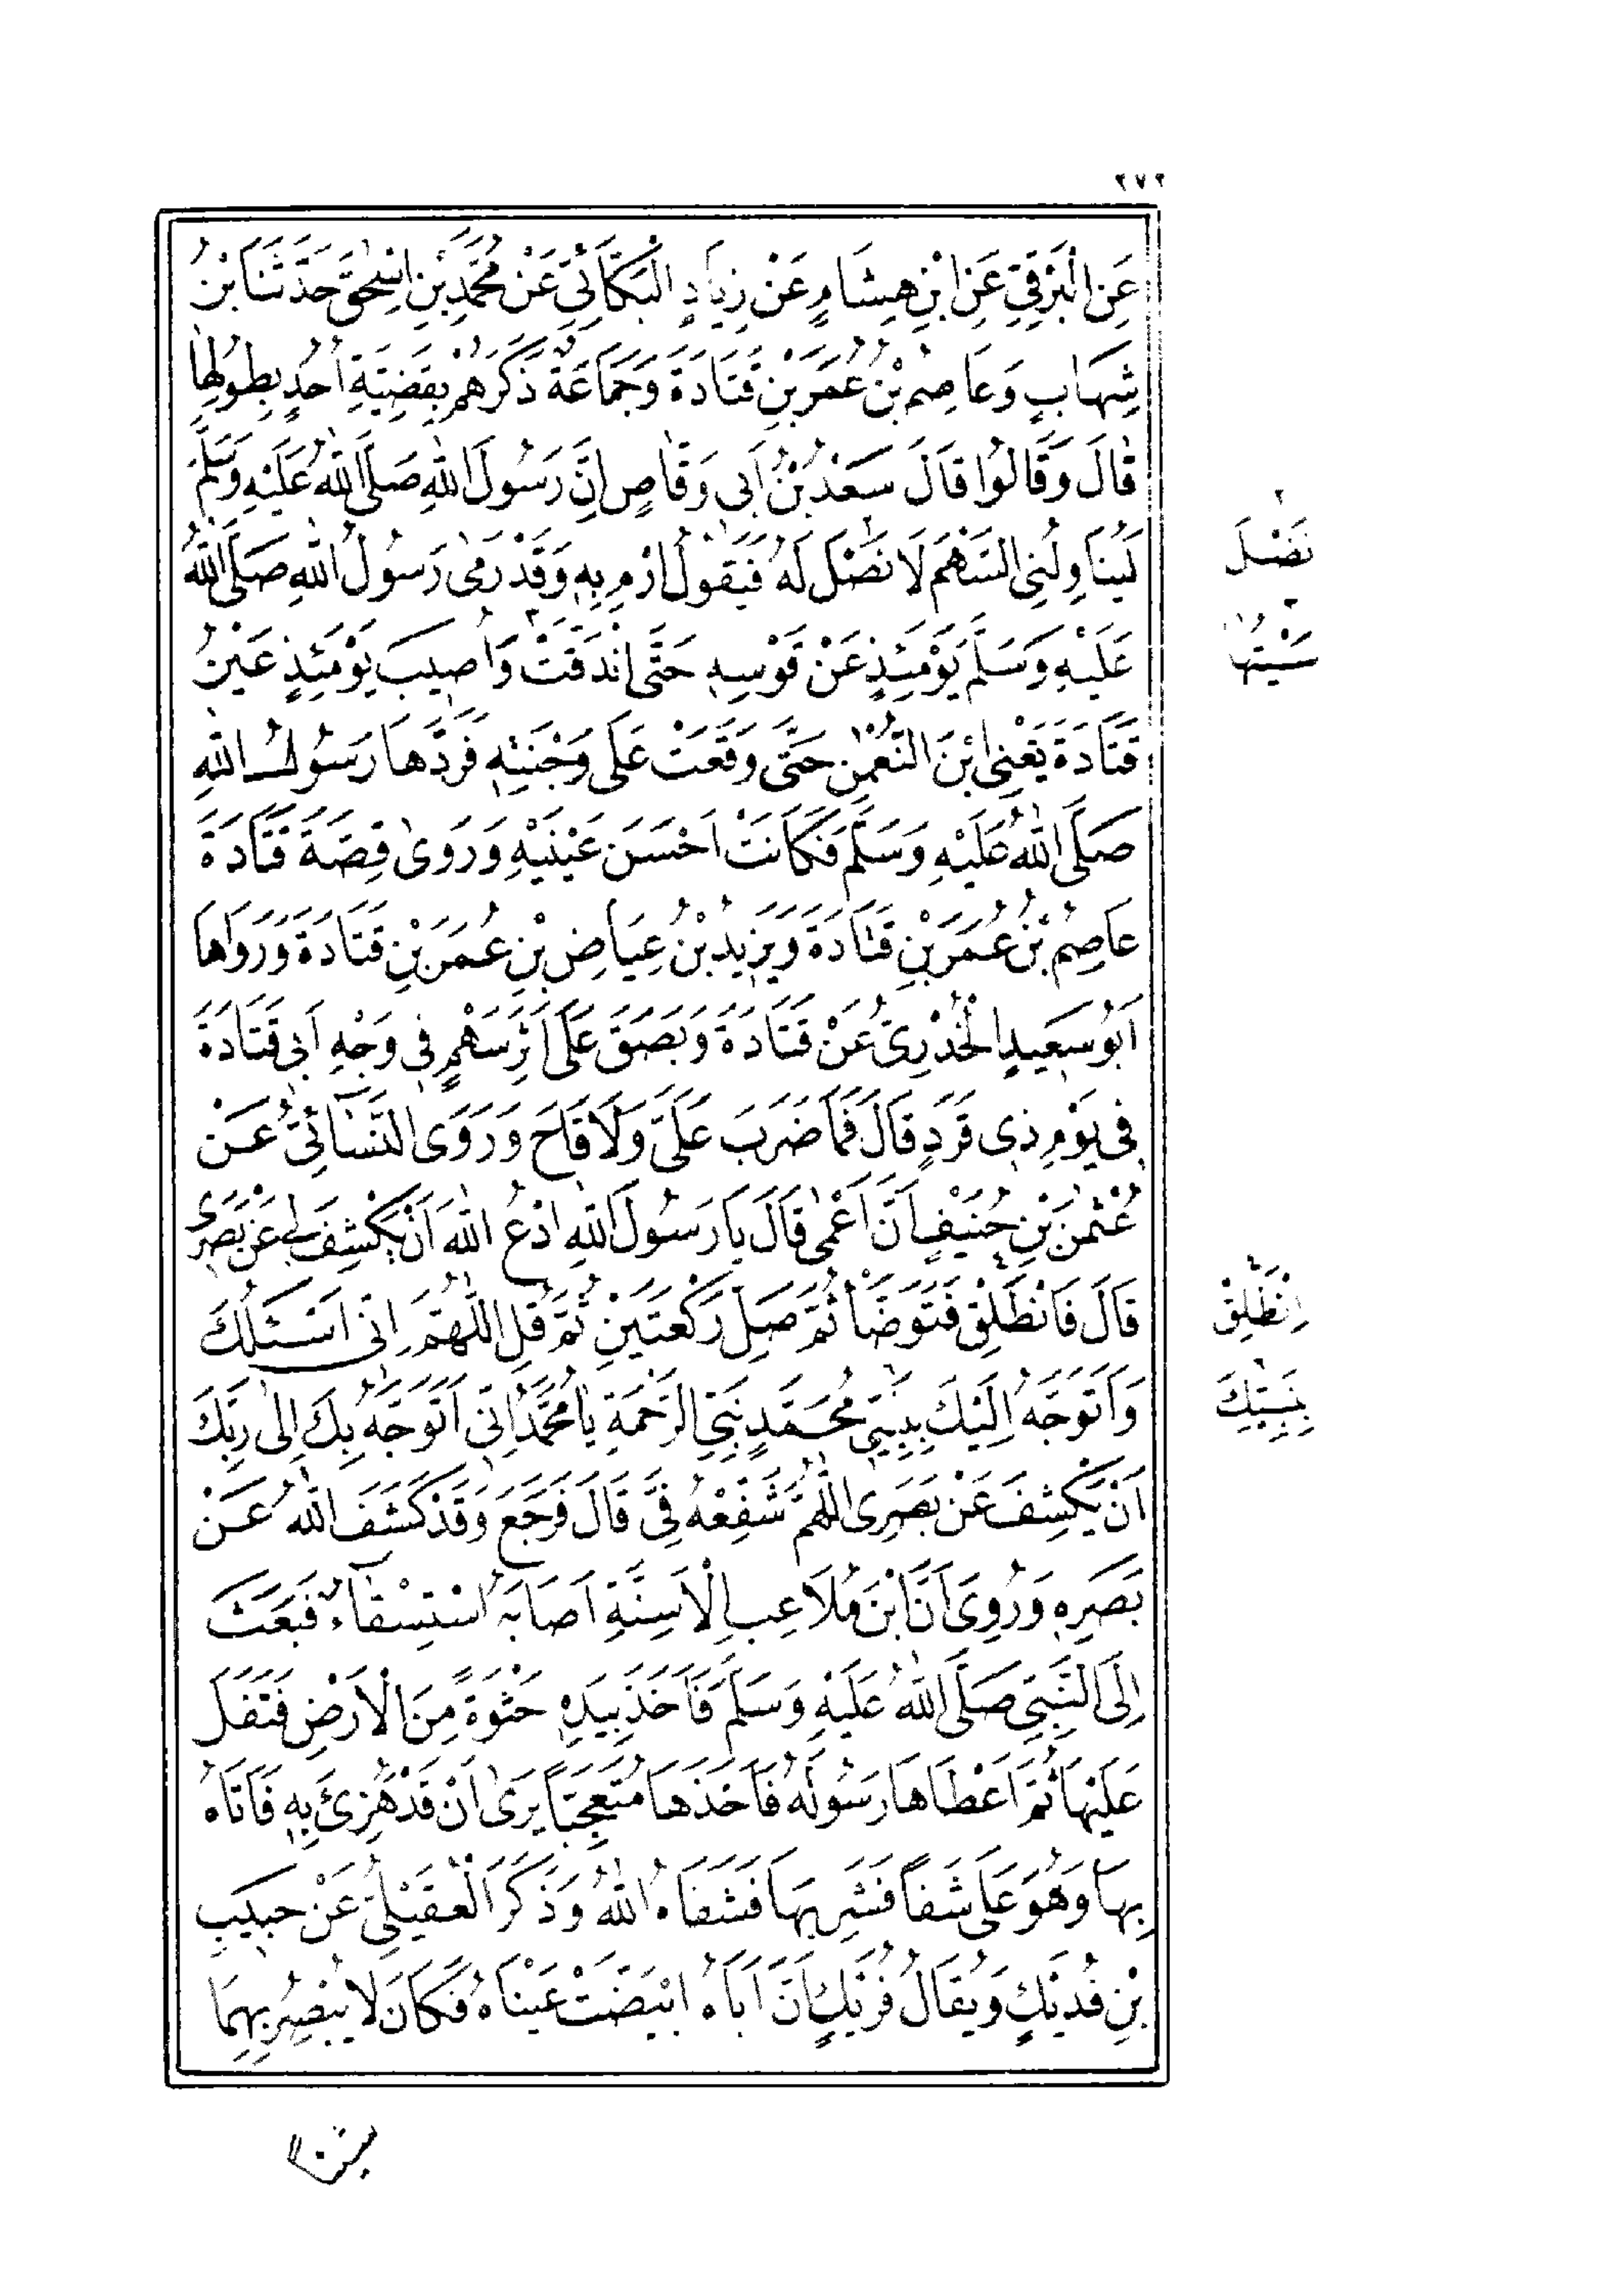 ٢٧٢
عَنِ الْبَرْقِيِّ عَنِ ابْنِ هِشَامٍ عَنْ زِيَادٍ الْبَكَّائِيِّ عَنْ مُحَمَّدِ بْنِ اِسْحٰقَ حَدَّثَنَا ابْنُ
شِهَابٍ وَعَاصِمُ بْنُ عُمَرَ بْنِ قَتَادَةَ وَجَمَاعَةٌ ذَكَرَهُمْ بِقَضِيَّةِ اُحُدٍ بِطُولِهَا
قَالَ وَقَالُوا قَالَ سَعْدُ بْنُ اَبِى وَقَّاصٍ اِنَّ رَسُولَ اللّٰهِ صَلَّى اللّٰهُ عَلَيْهِ وَسَلَّمَ
لَيُنَاوِلُنِى السَّهْمَ لَا نَصْلَ لَهُ فَيَقُولُ ارْمِ بِهِ وَقَدْ رَمٰى رَسُولُ اللّٰهِ صَلَّى اللّٰهُ
نَصْلَ
عَلَيْهِ وَسَلَّمَ يَوْمَئِذٍ عَنْ قَوْسِهِ حَتَّى انْدَقَّتْ وَاُصِيبَ يَوْمَئِذٍ عَيْنُ
سِيَتُهَا
قَتَادَةَ يَعْنِى ابْنَ النُّعْمٰنِ حَتَّى وَقَعَتْ عَلَى وَجْنَتِهِ فَرَدَّهَا رَسُولُ اللّٰهِ
صَلَّى اللّٰهُ عَلَيْهِ وَسَلَّمَ فَكَانَتْ اَحْسَنَ عَيْنَيْهِ وَرَوٰى قِصَّةَ قَتَادَةَ
عَاصِمُ بْنُ عُمَرَ بْنِ قَتَادَةَ وَيَزِيدُ بْنُ عِيَاضِ بْنِ عُمَرَ بْنِ قَتَادَةَ وَرَوَاهَا
اَبُو سَعِيدٍ الْخُدْرِىُّ عَنْ قَتَادَةَ وَبَصَقَ عَلَى اَثَرِ سَهْمٍ فِى وَجْهِ اَبِى قَتَادَةَ
فِى يَوْمِ ذِى قَرَدٍ قَالَ فَمَا ضَرَبَ عَلَىَّ وَلَا قَاحَ وَرَوَى النَّسَائِىُّ عَنْ
عُثْمٰنَ بْنِ حُنَيْفٍ اَنَّ اَعْمٰى قَالَ يَا رَسُولَ اللّٰهِ ادْعُ اللّٰهَ اَنْ يَكْشِفَ لِى عَنْ بَصَرِى
قَالَ فَانْطَلِقْ فَتَوَضَّأْ ثُمَّ صَلِّ رَكْعَتَيْنِ ثُمَّ قُلِ اللّٰهُمَّ اِنِّى اَسْئَلُكَ
اِنْطَلِقْ
وَاَتَوَجَّهُ اِلَيْكَ بِنَبِيِّى مُحَمَّدٍ نَبِىِّ الرَّحْمَةِ يَا مُحَمَّدُ اِنِّى اَتَوَجَّهُ بِكَ اِلٰى رَبِّكَ
بِنَبِيِّكَ
اَنْ يَكْشِفَ عَنْ بَصَرِى اللّٰهُمَّ شَفِّعْهُ فِىَّ قَالَ فَرَجَعَ وَقَدْ كَشَفَ اللّٰهُ عَنْ
بَصَرِهِ وَرُوِىَ اَنَّ ابْنَ مُلَاعِبِ الْاَسِنَّةِ اَصَابَهُ اسْتِسْقَاءٌ فَبَعَثَ
اِلَى النَّبِىِّ صَلَّى اللّٰهُ عَلَيْهِ وَسَلَّمَ فَاَخَذَ بِيَدِهِ حَثْوَةً مِنَ الْاَرْضِ فَتَفَلَ
عَلَيْهَا ثُمَّ اَعْطَاهَا رَسُولَهُ فَاَخَذَهَا مُتَعَجِّبًا يَرٰى اَنْ قَدْ هُزِئَ بِهِ فَاَتَاهُ
بِهَا وَهُوَ عَلَى شَفًا فَشَرِبَهَا فَشَفَاهُ اللّٰهُ وَذَكَرَ الْعُقَيْلِىُّ عَنْ حَبِيبِ
بْنِ فُدَيْكٍ وَيُقَالُ فُرَيْكٍ اَنَّ اَبَاهُ ابْيَضَّتْ عَيْنَاهُ فَكَانَ لَا يُبْصِرُ بِهِمَا